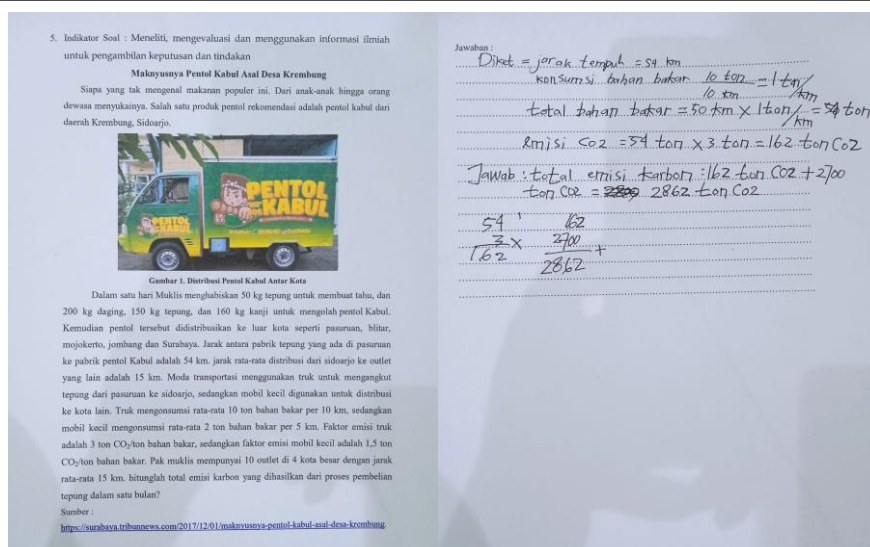 5. Indikator Soal : Meneliti, mengevaluasi dan menggunakan informasi ilmiah
untuk pengambilan keputusan dan tindakan
Maknyusnya Pentol Kabul Asal Desa Krembung
Siapa yang tak mengenal makanan populer ini. Dari anak-anak hingga orang
dewasa menyukainya. Salah satu produk pentol rekomendasi adalah pentol kabul dari
daerah Krembung, Sidoarjo.
PENTOL
KABUL
PENTOL
KABUL
Gambar 1. Distribusi Pentol Kabul Antar Kota
Dalam satu hari Muklis menghabiskan 50 kg tepung untuk membuat tahu, dan
200 kg daging, 150 kg tepung, dan 160 kg kanji untuk mengolah pentol Kabul.
Kemudian pentol tersebut didistribusikan ke luar kota seperti pasuruan, blitar,
mojokerto, jombang dan Surabaya. Jarak antara pabrik tepung yang ada di pasuruan
ke pabrik pentol Kabul adalah 54 km. jarak rata-rata distribusi dari sidoarjo ke outlet
yang lain adalah 15 km. Moda transportasi menggunakan truk untuk mengangkut
tepung dari pasuruan ke sidoarjo, sedangkan mobil kecil digunakan untuk distribusi
ke kota lain. Truk mengonsumsi rata-rata 10 ton bahan bakar per 10 km, sedangkan
mobil kecil mengonsumsi rata-rata 2 ton bahan bakar per 5 km. Faktor emisi truk
adalah 3 ton CO₂/ton bahan bakar, sedangkan faktor emisi mobil kecil adalah 1,5 ton
CO₂/ton bahan bakar. Pak muklis mempunyai 10 outlet di 4 kota besar dengan jarak
rata-rata 15 km. hitunglah total emisi karbon yang dihasilkan dari proses pembelian
tepung dalam satu bulan?
Sumber :
https://surabaya.tribunnews.com/2017/12/01/maknyusnya-pentol-kabul-asal-desa-krembung.
Jawaban :
Diket = jarak tempuh = 54 km
konsumsi bahan bakar 10 ton = 1 ton/
10 km km
total bahan bakar = 50 km x 1 ton/ = 54 ton
km
Emisi CO2 = 54 ton x 3 ton = 162 ton CO2
Jawab : total emisi karbon = 162 ton CO2 + 2700
ton CO2 = 2862 ton CO2
54 162
3 x 2700 +
162 2862